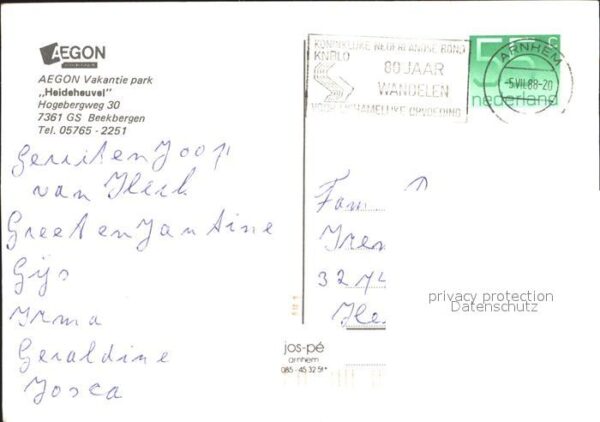 AEGON
AEGON Vakantie park
„Heideheuvel"
Hogebergweg 30
7361 GS Beekbergen
Tel. 05765 - 2251
KONINKLIJKE NEDERLANDSE BOND
KNBLO
80 JAAR
WANDELEN
VOOR LICHAMELIJKE OPVOEDING
ARNHEM
-5.VII.88-20
55 c
nederland
Gerrit en Joop
van
Greet en Jantine
Gijs
Irma
Geraldine
Josca
Fam
3274
privacy protection
Datenschutz
jos-pé
arnhem
085-45 32 51*